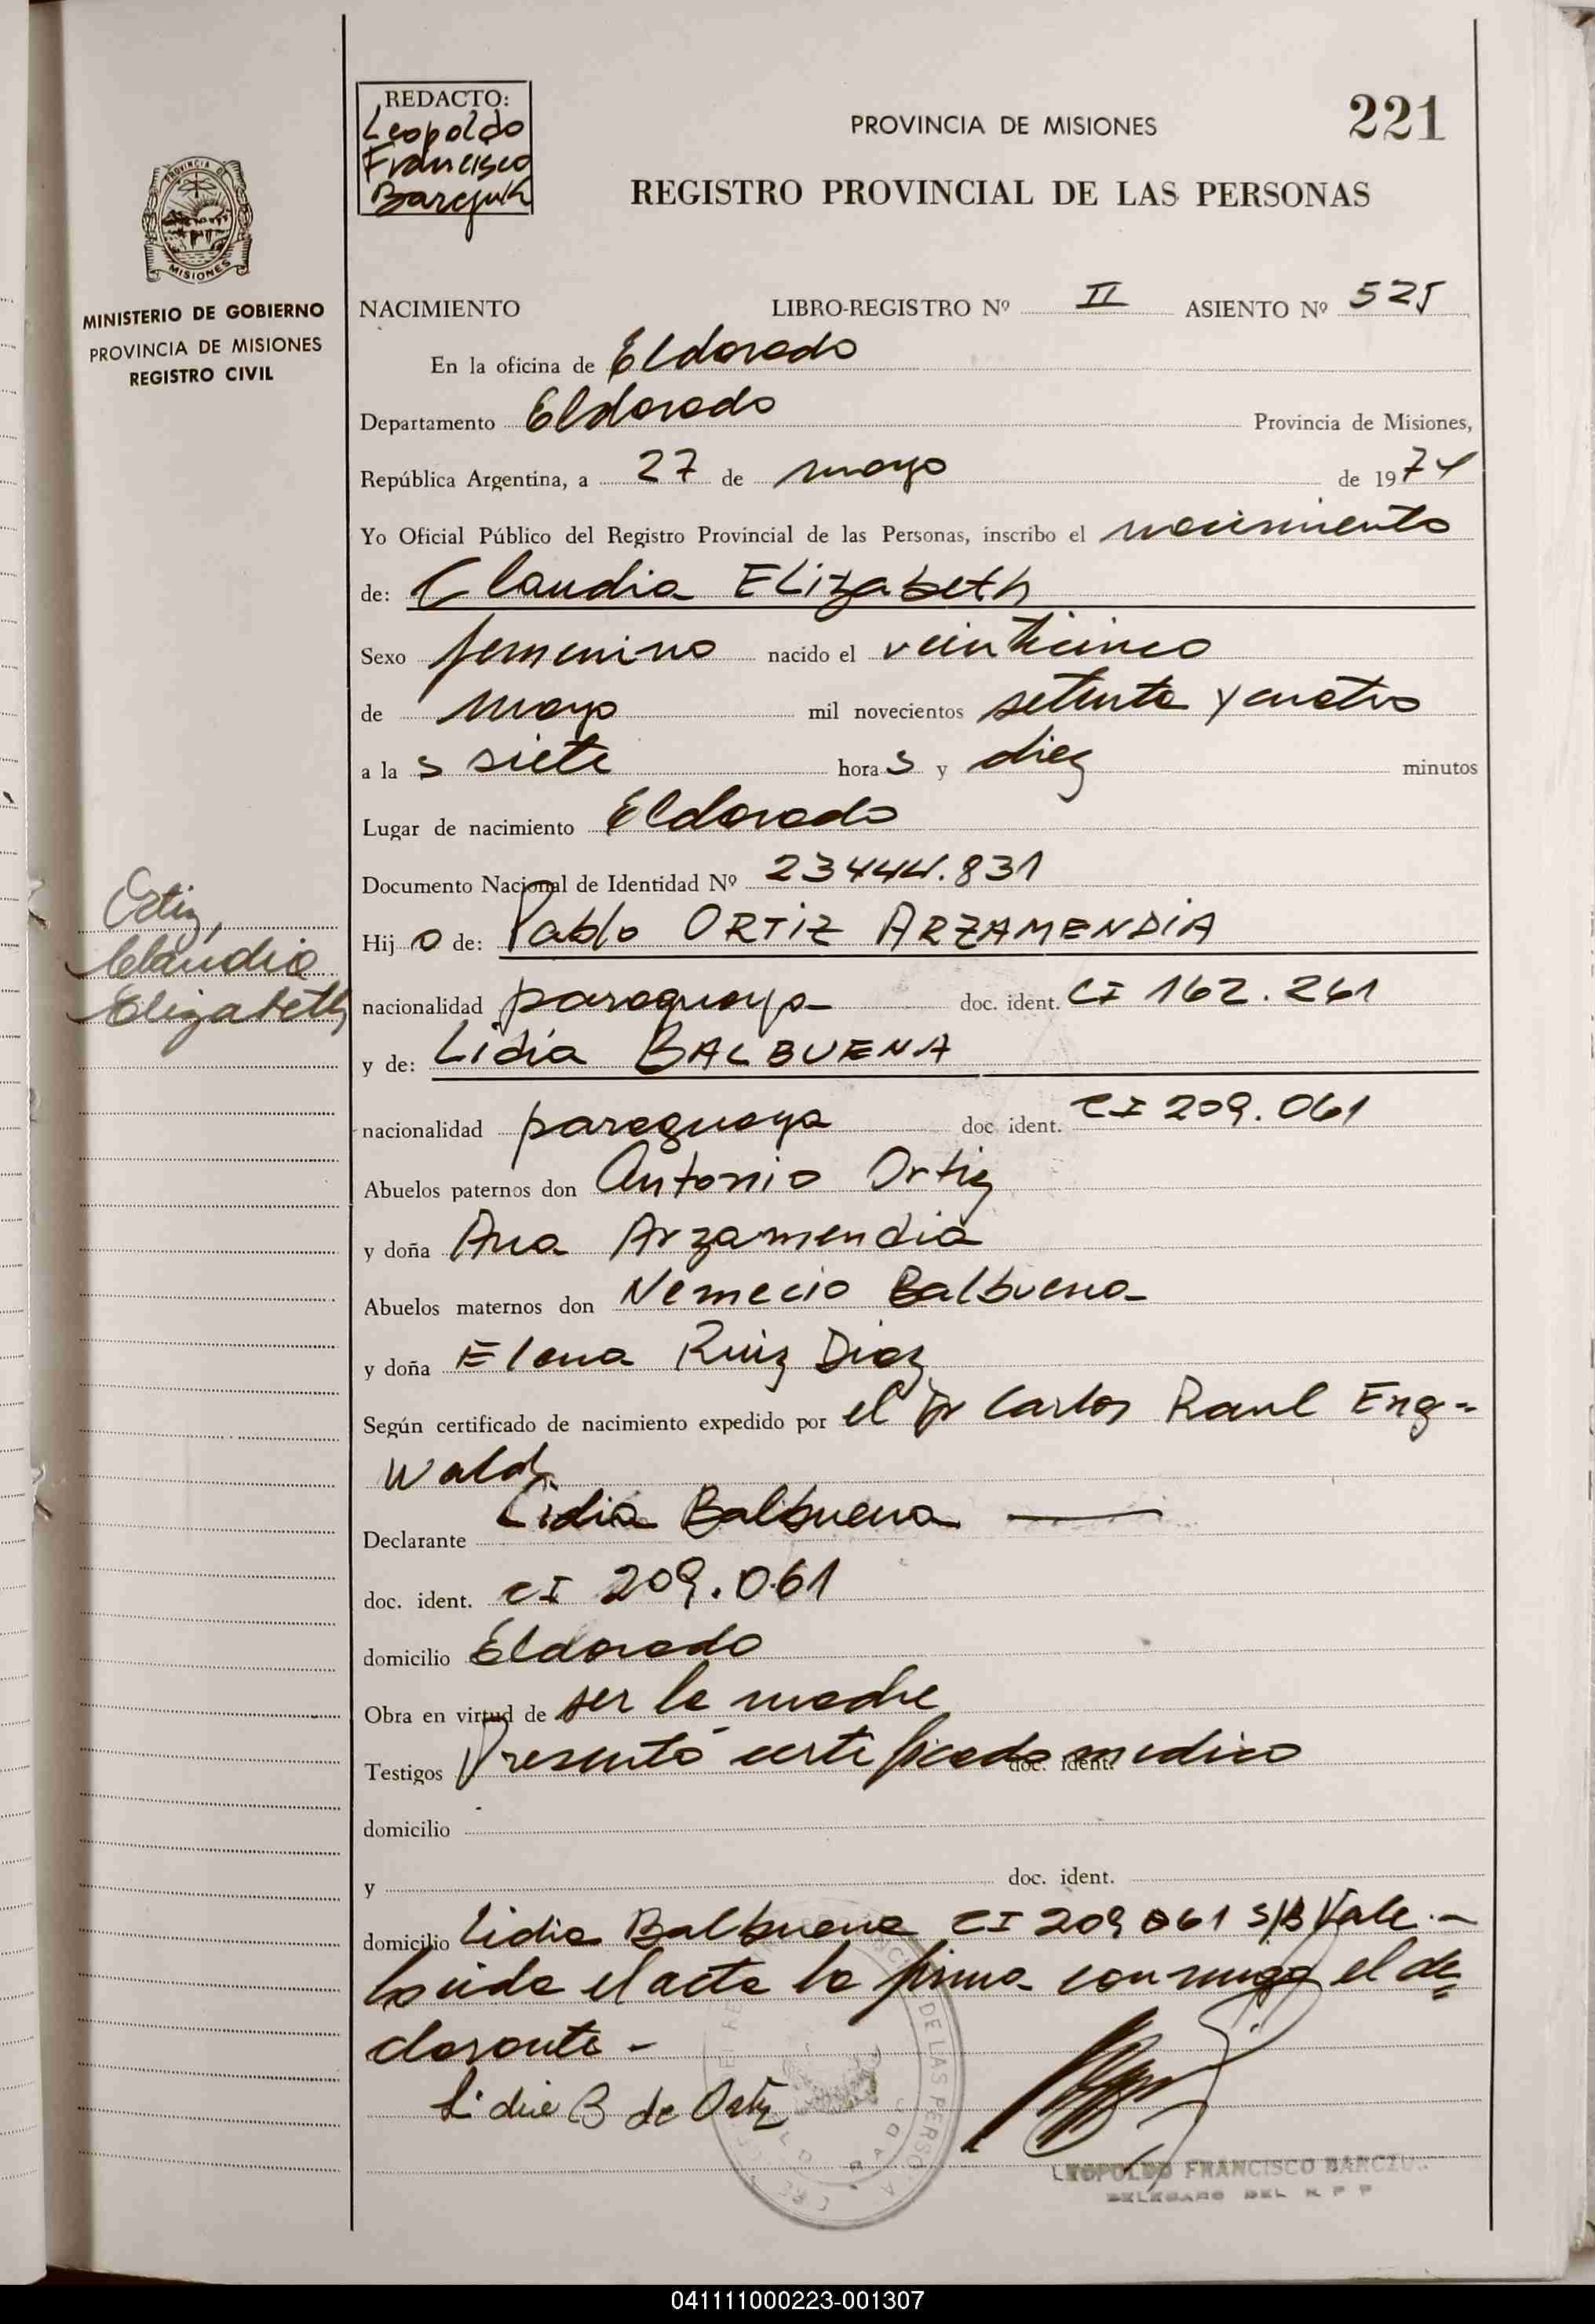 REDACTO:
Leopoldo
Francisco
PROVINCIA DE MISIONES
221
REGISTRO PROVINCIAL DE LAS PERSONAS
PROVINCIA DE
MISIONES
MINISTERIO DE GOBIERNO
PROVINCIA DE MISIONES
REGISTRO CIVIL
NACIMIENTO LIBRO-REGISTRO Nº II ASIENTO Nº 525
En la oficina de Eldorado
Departamento Eldorado Provincia de Misiones,
República Argentina, a 27 de mayo de 1974
Yo Oficial Público del Registro Provincial de las Personas, inscribo el nacimiento
de: Claudia ELizabeth
Sexo femenino nacido el veinticinco
de mayo mil novecientos setenta y cuatro
a la s siete hora s y diez minutos
Lugar de nacimiento Eldorado
Documento Nacional de Identidad Nº 23444.831
Ortiz,
Claudia
Elizabeth
Hij a de: Pablo ORTIZ ARZAMENDIA
nacionalidad paraguaya doc. ident. CI 162.261
y de: Lidia BALBUENA
nacionalidad paraguaya doc. ident. CI 209.061
Abuelos paternos don Antonio Ortiz
y doña Ana Arzamendia
Abuelos maternos don Nemecio Balbuena
y doña Elena Ruiz Diaz
Según certificado de nacimiento expedido por el Dr Carlos Raul Eng=
wald
Declarante Lidia Balbuena
doc. ident. CI 209.061
domicilio Eldorado
Obra en virtud de ser la madre
Testigos Presentó certificado medico doc. ident.
domicilio
y doc. ident.
domicilio Lidia Balbuena CI 209061 S/B Vale.-
Leida el acta la firma conmigo el de=
clarante -
Lidia B de Ortiz
LEOPOLDO FRANCISCO
DELEGADO DEL R P P
041111000223-001307